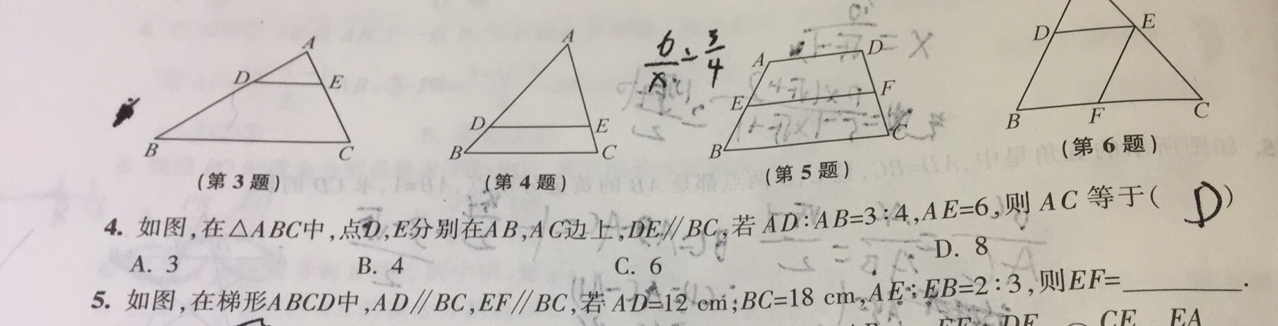 A
D
E
B
C
(第3题)
A
D
E
B
C
(第4题)
6/x = 3/4
A
D
E
F
B
C
(第5题)
D
E
B
F
C
(第6题)
4. 如图,在△ABC中,点D,E分别在AB,AC边上,DE∥BC,若AD:AB=3:4,AE=6,则AC等于( D )
A. 3 B. 4 C. 6 D. 8
5. 如图,在梯形ABCD中,AD∥BC,EF∥BC,若AD=12 cm;BC=18 cm,AE:EB=2:3,则EF=________.
CE EA